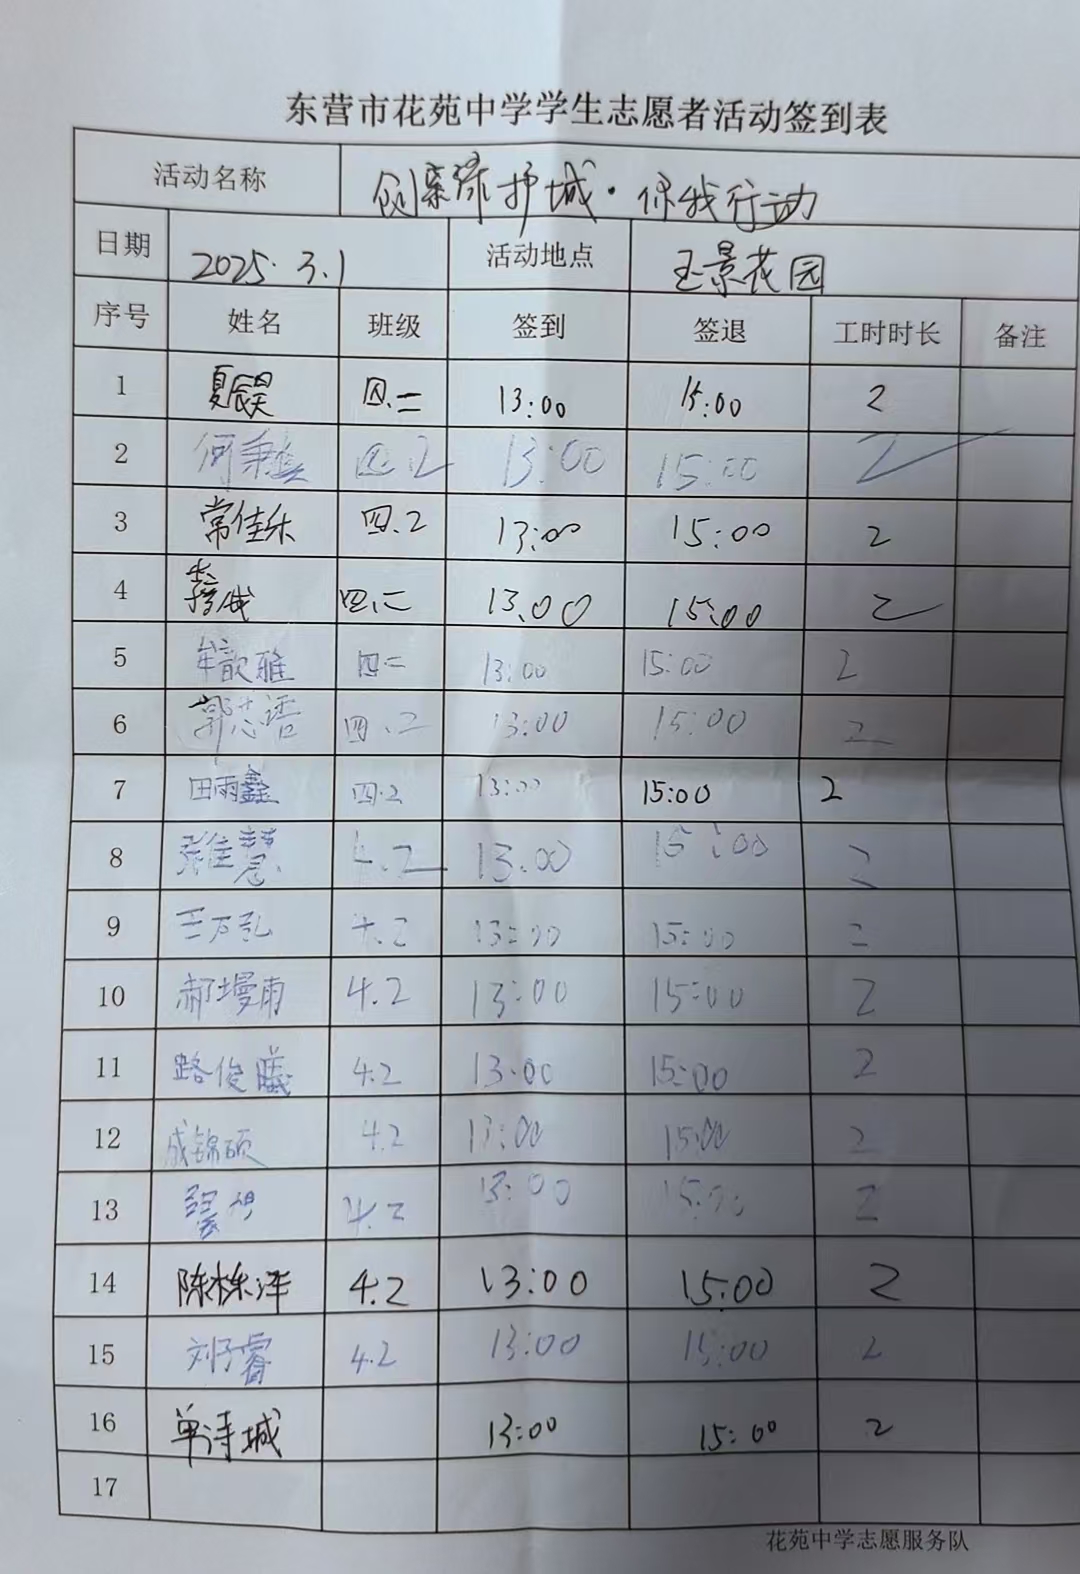 东营市花苑中学学生志愿者活动签到表
活动名称 创绿护城·你我行动
日期 2025.3.1 活动地点 玉景花园
序号 姓名 班级 签到 签退 工时时长 备注
1 夏辰昊 四.二 13:00 15:00 2
2 何秉 四.2 13:00 15:00 2
3 常佳乐 四.2 13:00 15:00 2
4 四.二 13:00 15:00 2
5 牟歆雅 四二 13:00 15:00 2
6 郭志语 四.二 13:00 15:00 2
7 田雨鑫 四.2 13:00 15:00 2
8 张佳慧 4.2 13:00 15:00 2
9 王万弘 4.2 13:00 15:00 2
10 郝墁雨 4.2 13:00 15:00 2
11 路俊曦 4.2 13:00 15:00 2
12 成锦硕 4.2 13:00 15:00 2
13 4.2 13:00 15:00 2
14 陈栋洋 4.2 13:00 15:00 2
15 刘子睿 4.2 13:00 15:00 2
16 单诗城 13:00 15:00 2
17
花苑中学志愿服务队